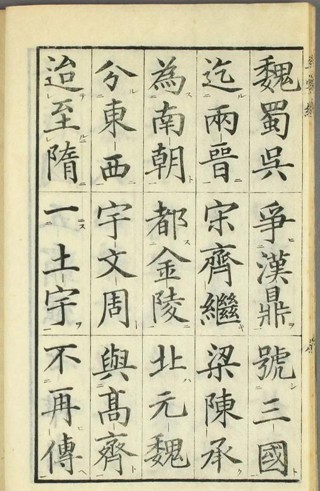 魏蜀呉爭漢鼎號三國
迄兩晋宋齊繼梁陳承
為南朝都金陵北元魏
分東西宇文周與高齊
迨至隋一土宇不再傳